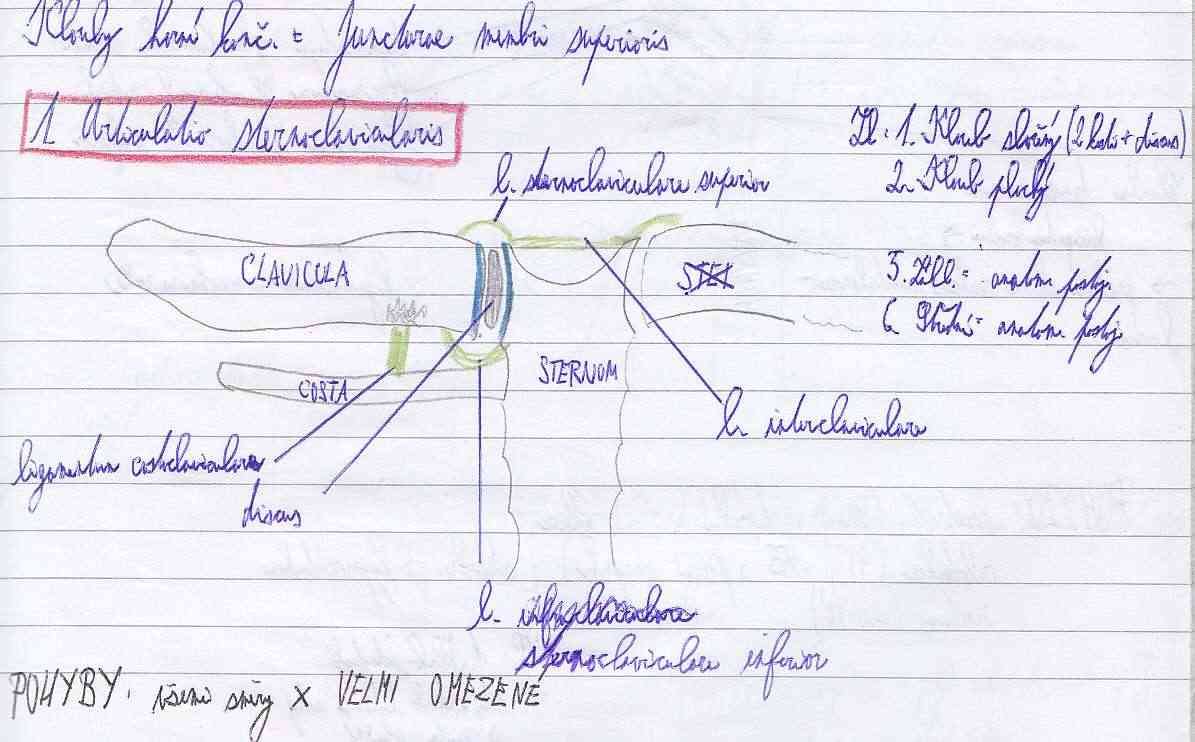 Klouby horní konč. = Juncturae membri superioris
1. Articulatio sternoclavicularis
Zl: 1. Kloub složený (2 kosti + discus)
2. Kloub plochý
l. sternoclaviculare superior
CLAVICULA
5. Zákl. = anatom. postoj.
6. Střední = anatom. postoj
COSTA
STERNUM
l. interclaviculare
ligamentum costoclaviculare
discus
l.
sternoclaviculare inferior
POHYBY: všemi směry X VELMI OMEZENÉ